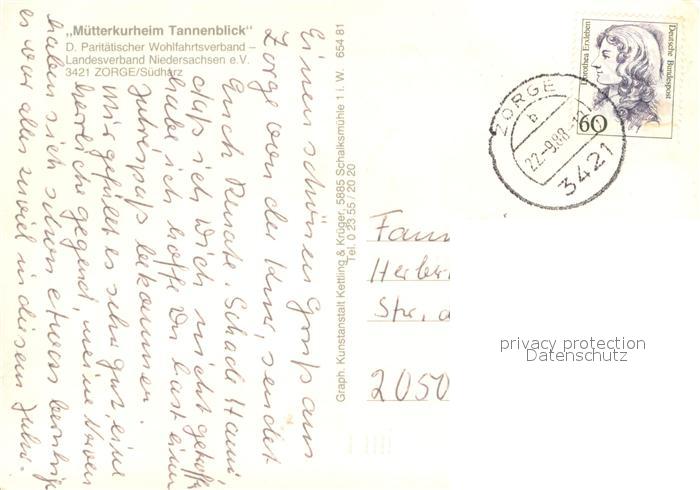 „Mütterkurheim Tannenblick"
D. Paritätischer Wohlfahrtsverband –
Landesverband Niedersachsen e.V.
3421 ZORGE/Südharz
Einen schönen Gruß aus
Zorge von der Kur, sendet
Euch Renate. Schade Hanni
daß ich Dich nicht getroffen
habe ich hoffe Du hast eine
bekommen.
Mir gefällt es sehr gut, eine
herrliche gegend, meine Nerven
haben sich schon etwas beruhigt
es war alles zuviel in diesem Jahr.
Graph. Kunstanstalt Kettling & Krüger, 5885 Schalksmühle 1 i. W. 654 81
Tel. 0 23 55 / 20 20
Dorothea Erxleben
Deutsche Bundespost
60
ZORGE
b
22.-9.88.-
3421
Fam
Herber
Str, a
2050
privacy protection
Datenschutz